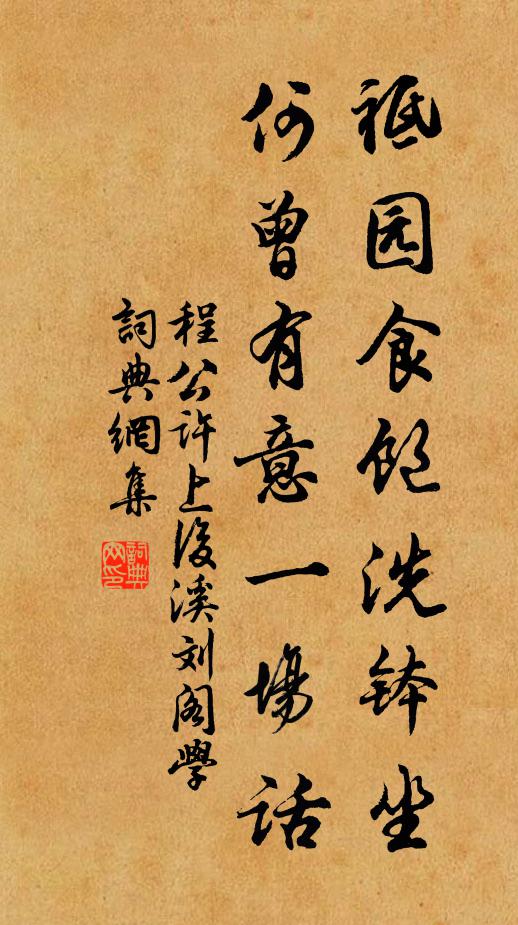 祗园食饱洗钵坐
何曾有意一場话
程公许上後溪刘阁學
詞典網集
詞典網印